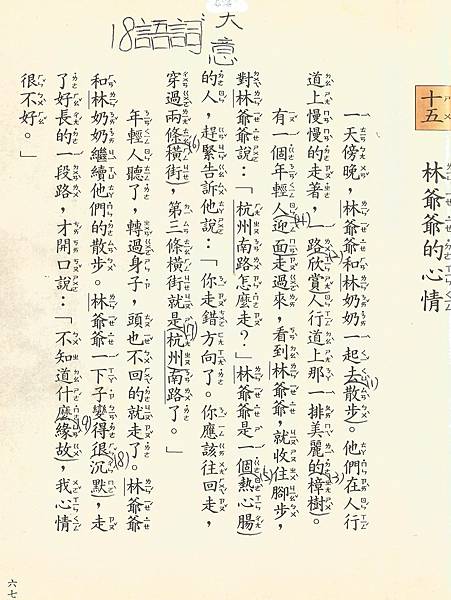 大意
18語詞
十五 林爺爺的心情
一天傍晚，林爺爺和林奶奶一起去散步。他們在人行
道上慢慢的走著，一路欣賞人行道上那一排美麗的樟樹。
有一個年輕人迎面走過來，看到林爺爺，就收住腳步，
對林爺爺說：「杭州南路怎麼走？」林爺爺是一個熱心腸
的人，趕緊告訴他說：「你走錯方向了。你應該往回走，
穿過兩條橫街，第三條橫街就是杭州南路了。」
年輕人聽了，轉過身子，頭也不回的就走了。林爺爺
和林奶奶繼續他們的散步。林爺爺一下子變得很沉默，走
了好長的一段路，才開口說：「不知道什麼緣故，我心情
很不好。」
六七